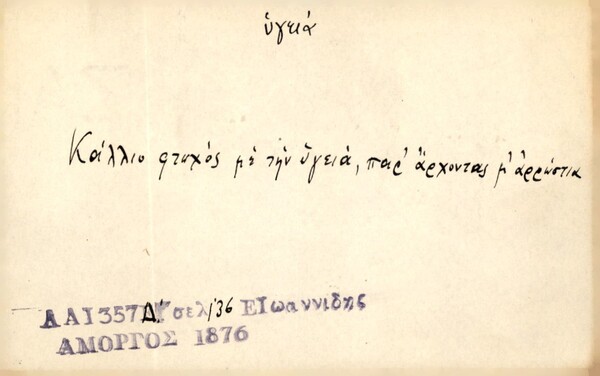 ὑγειά
Κάλλιο φτωχός μὲ τὴν ὑγειά, παρ' ἄρχοντας μ' ἀρρώστια
ΛΑΙ357 Δ' σελ 136 ΕΙωαννιδης
ΑΜΟΡΓΟΣ 1876